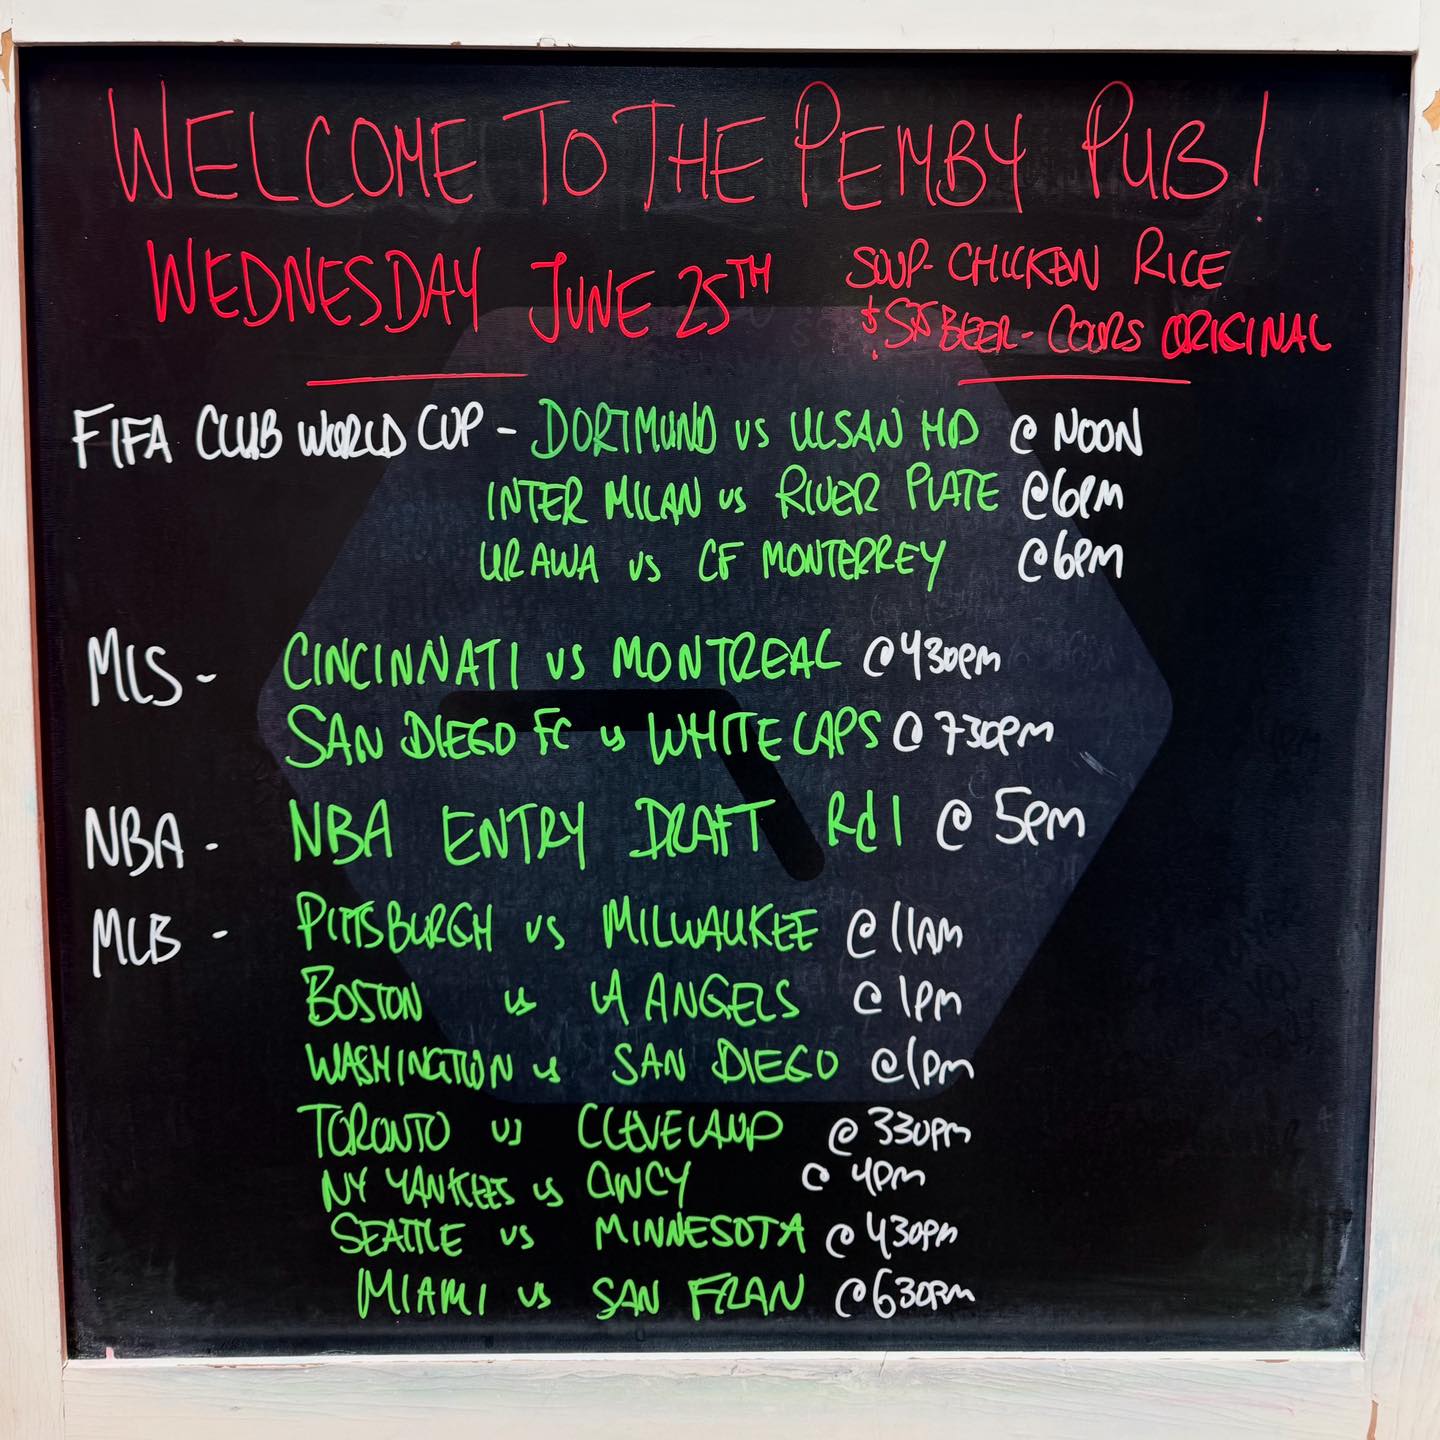 WELCOME TO THE PEMBY PUB!
WEDNESDAY JUNE 25TH
SOUP- CHICKEN RICE
$5 BEER- COORS ORIGINAL
FIFA CLUB WORLD CUP - DORTMUND VS ULSAN HD @ NOON
INTER MILAN VS RIVER PLATE @6PM
URAWA VS CF MONTERREY @6PM
MLS - CINCINNATI VS MONTREAL @430PM
SAN DIEGO FC VS WHITECAPS @ 730PM
NBA - NBA ENTRY DRAFT Rd 1 @ 5PM
MLB - PITTSBURGH VS MILWAUKEE @11AM
BOSTON VS LA ANGELS @ 1PM
WASHINGTON VS SAN DIEGO @1PM
TORONTO VS CLEVELAND @ 330PM
NY YANKEES VS CINCY @ 4PM
SEATTLE VS MINNESOTA @ 430PM
MIAMI VS SAN FRAN @630PM